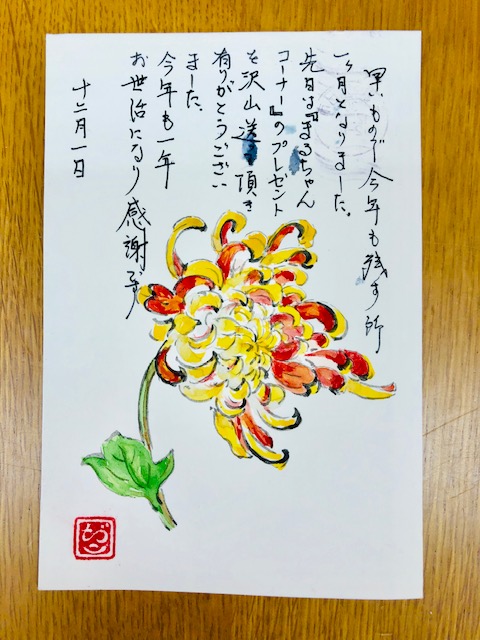 早いもので今年も残す所
一ヶ月となりました。
先日は『まるちゃん
コーナー』のプレゼント
を沢山送り頂き
有りがとうござい
ました。
今年も一年
お世治になり感謝です
十二月一日